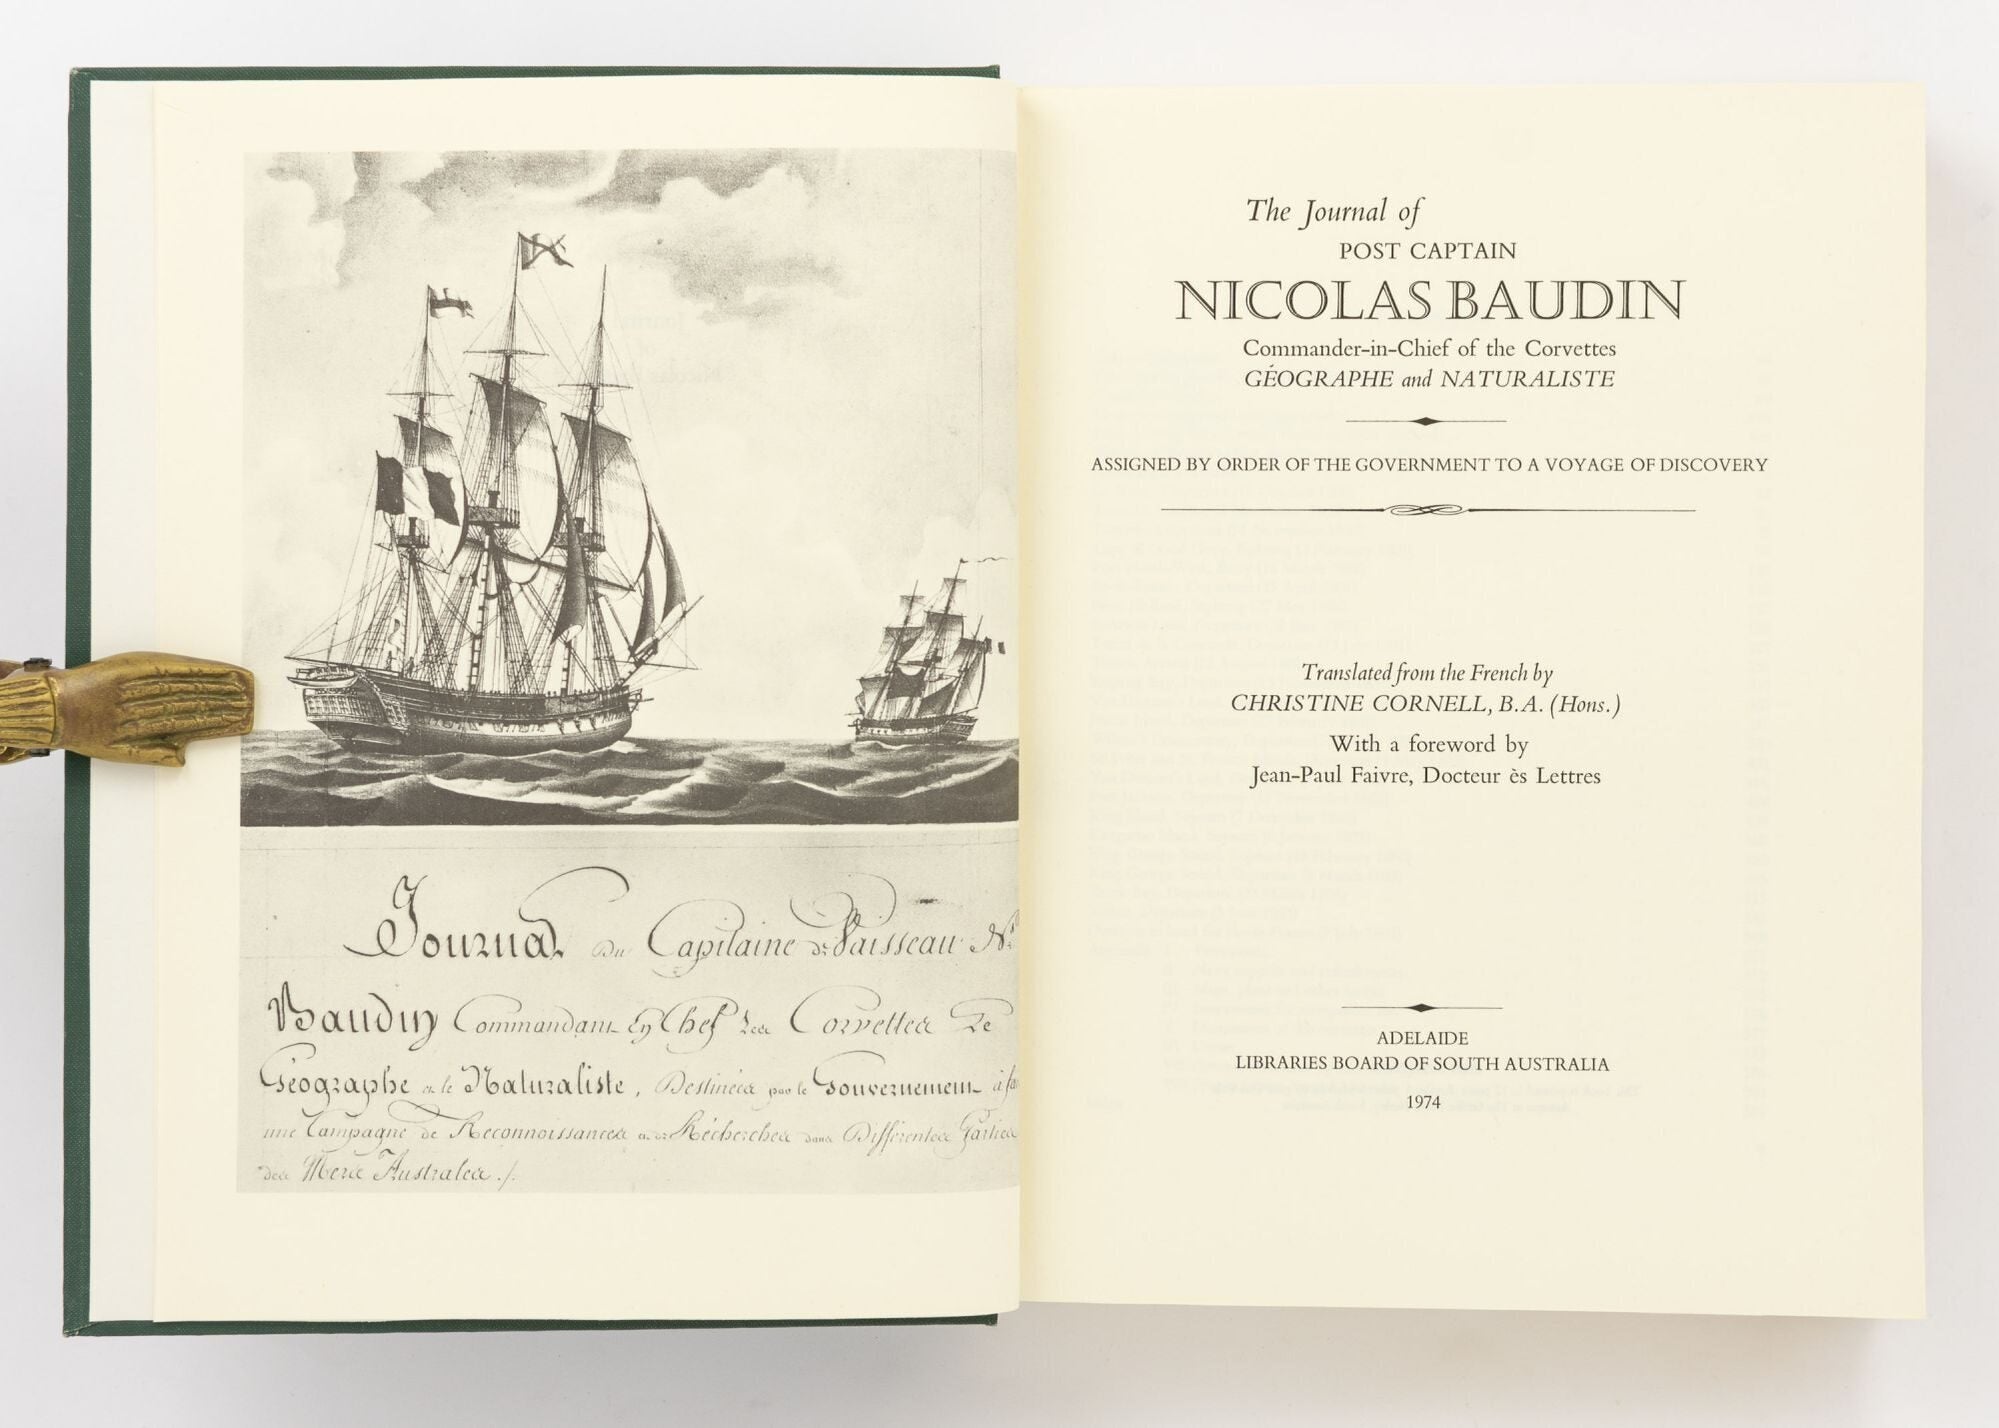 Journal du Capitaine de Vaisseau Nas
Baudin Commandant En Chef des Corvettes Le
Géographe et le Naturaliste, Destinées par le Gouvernement à
une Campagne de Reconnoissances et de Récherches dans Différentes Parties
des Mers Australes ./.
The Journal of
POST CAPTAIN
NICOLAS BAUDIN
Commander-in-Chief of the Corvettes
GÉOGRAPHE and NATURALISTE
ASSIGNED BY ORDER OF THE GOVERNMENT TO A VOYAGE OF DISCOVERY
Translated from the French by
CHRISTINE CORNELL, B.A. (Hons.)
With a foreword by
Jean-Paul Faivre, Docteur ès Lettres
ADELAIDE
LIBRARIES BOARD OF SOUTH AUSTRALIA
1974